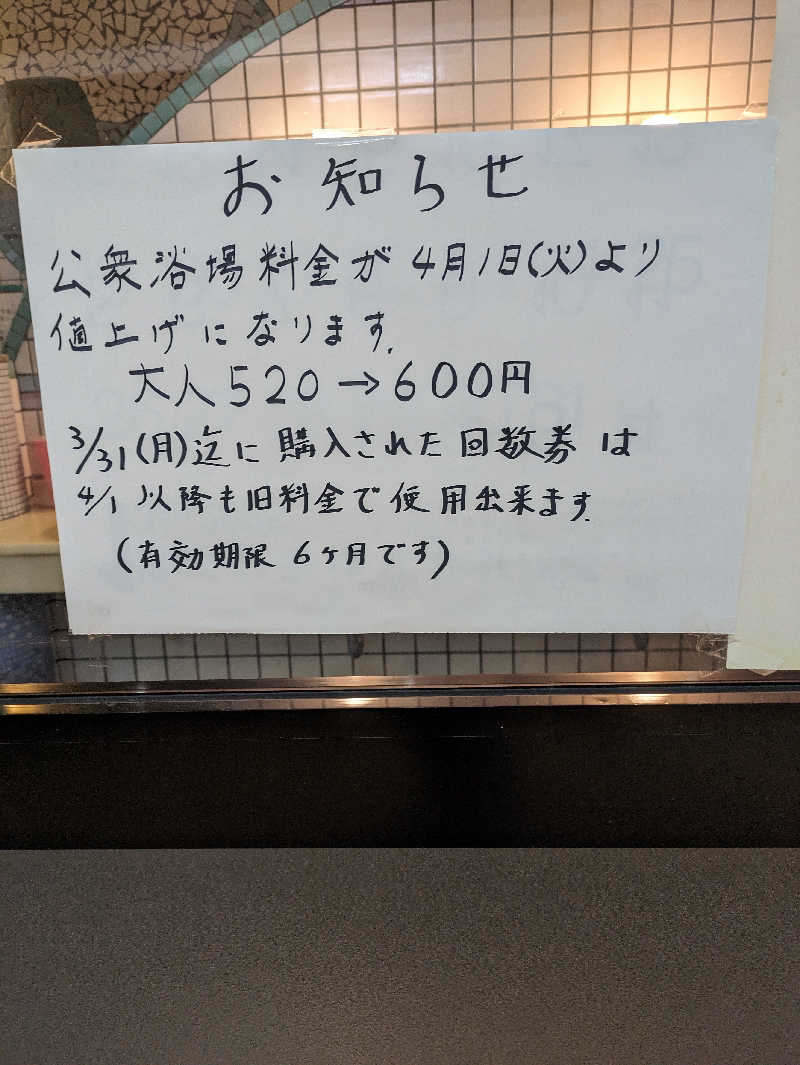 お知らせ
公衆浴場料金が4月1日(火)より
値上げになります.
大人520→600円
3/31(月)迄に購入された回数券は
4/1以降も旧料金で使用出来ます.
(有効期限 6ヶ月です)